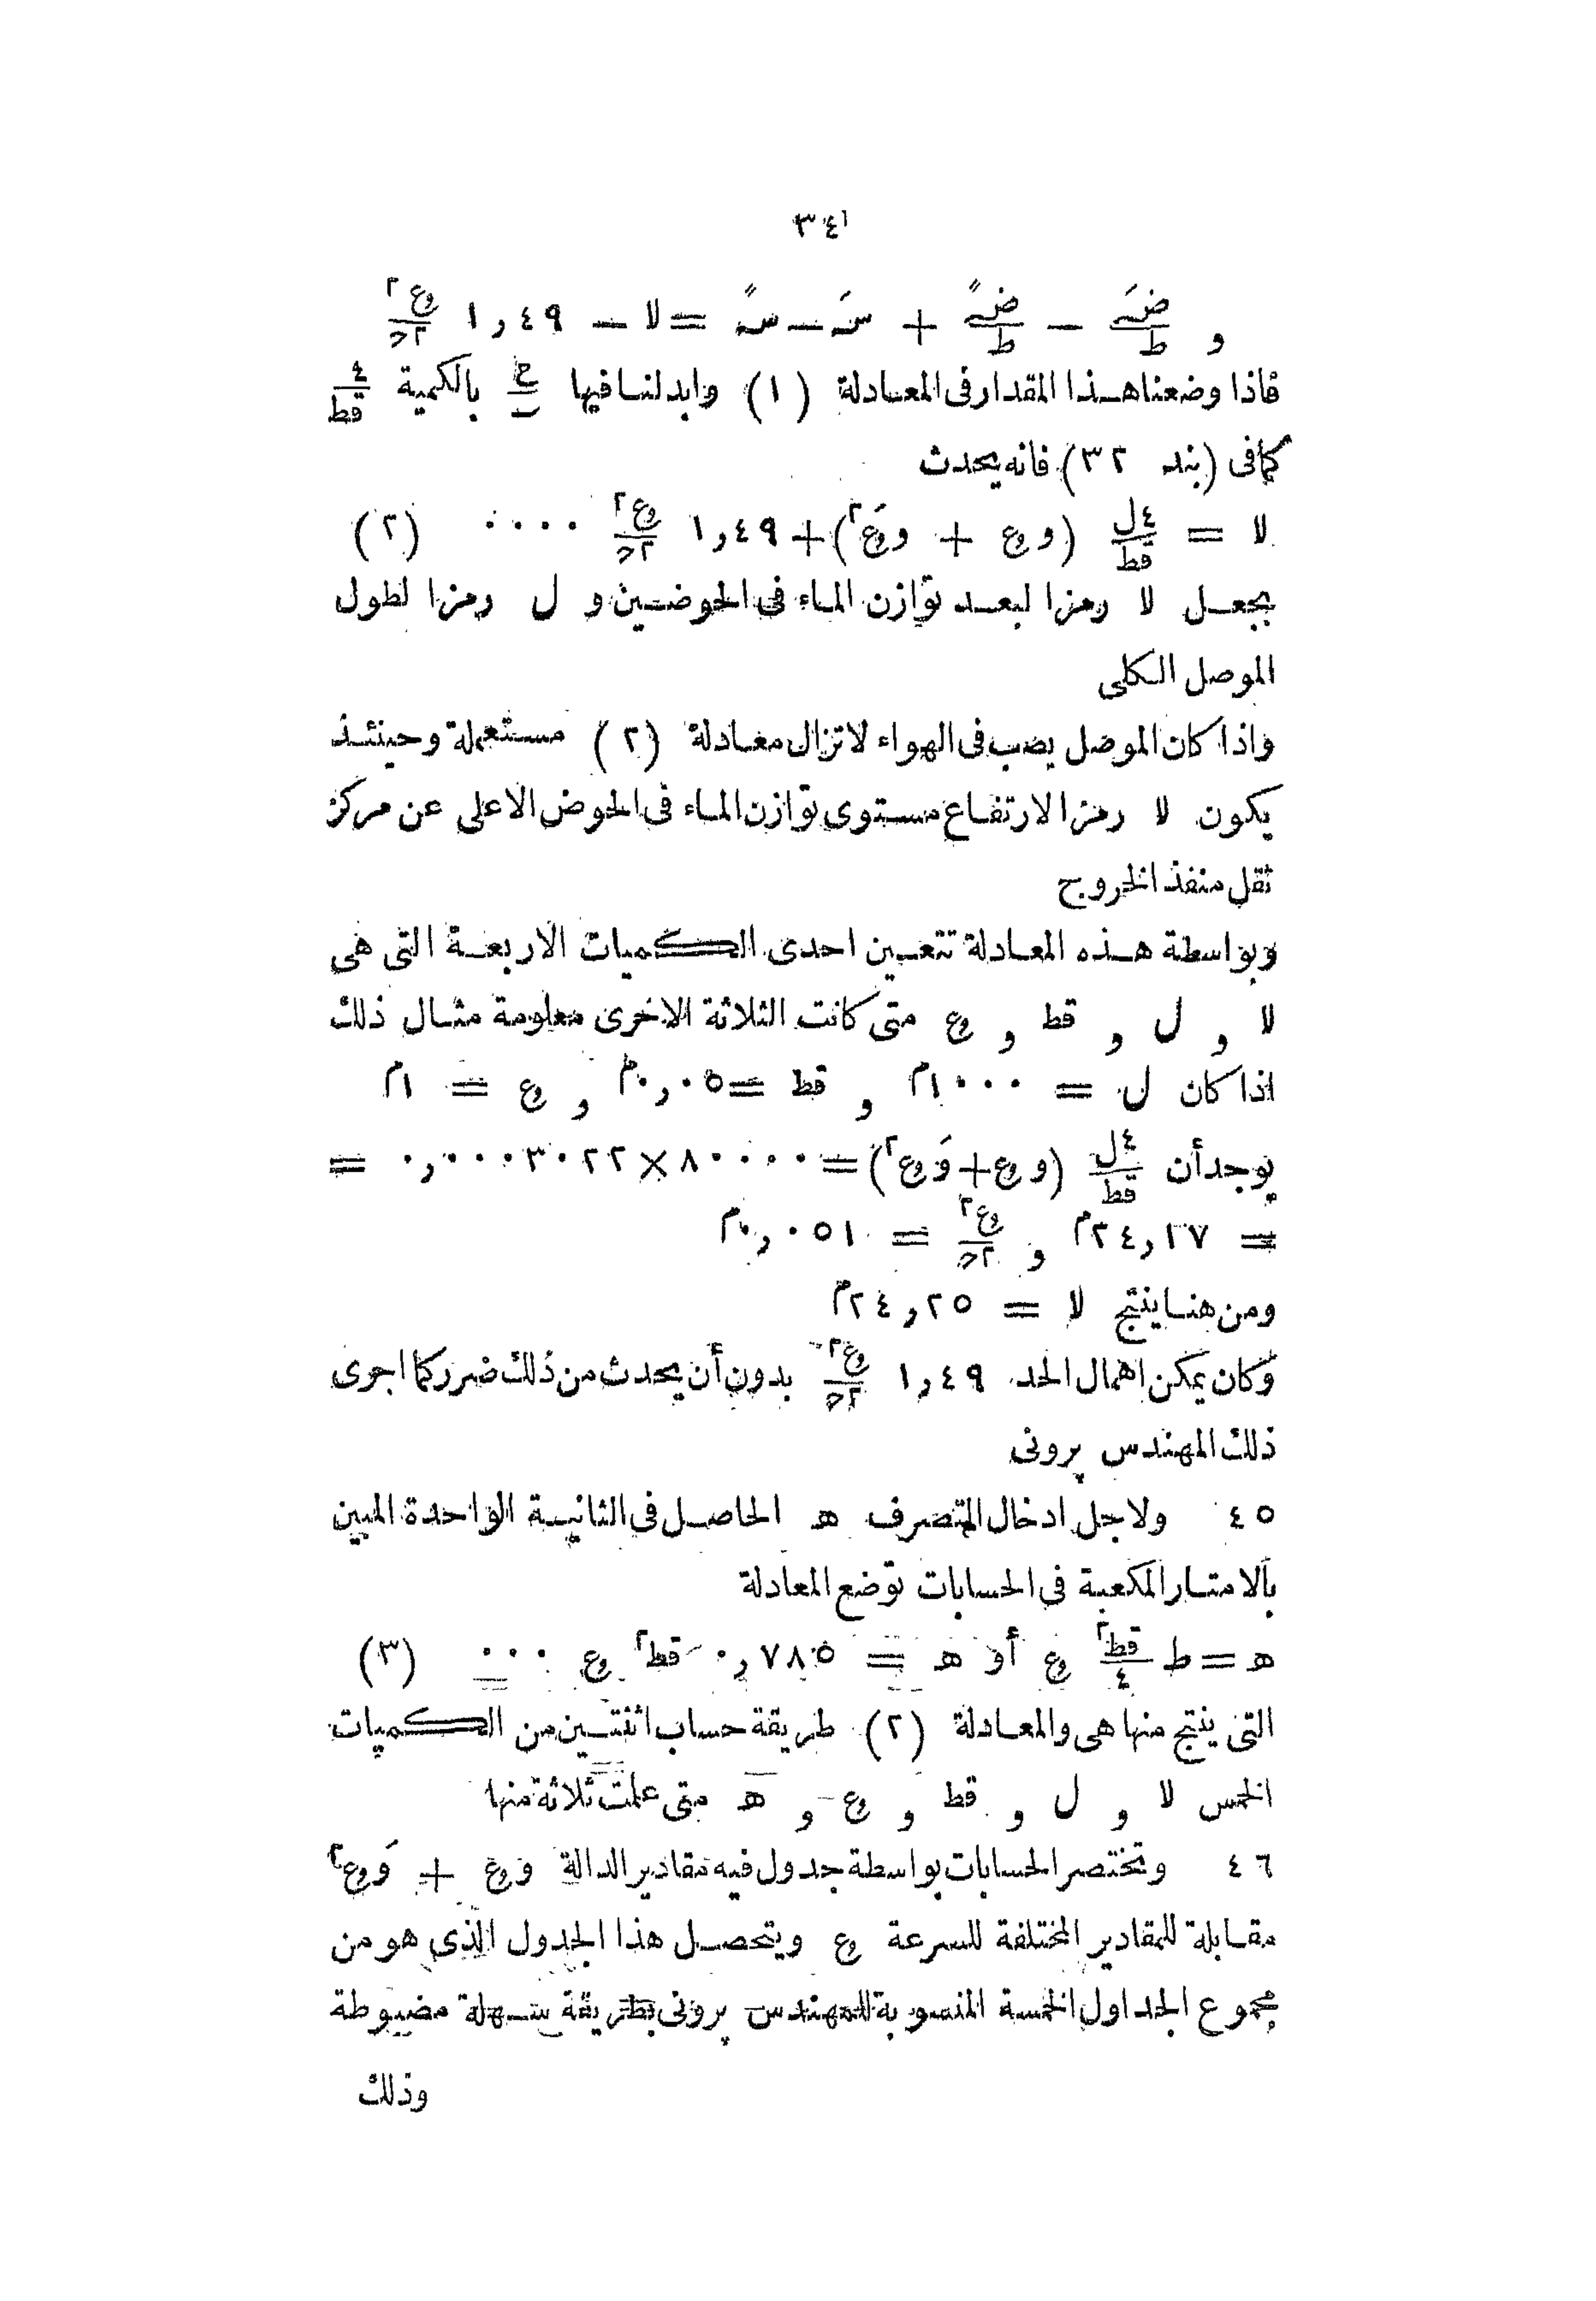 ٣٤١
و ضَ/ط − ضً/ط + سَ − سً = لا − ١,٤٩ ع٢/٢ح
فاذا وضعنا هذا المقدار فى المعادلة (١) وابدلنا فيها ح/ب بالكمية ٤/قط
كما فى (بند ٣٢) فانه يحدث
لا = ٤ل/قط (وع + وَع٢) + ١,٤٩ ع٢/٢ح ···· (٢)
بجعل لا رمزا لبعد توازن الماء فى الحوضين و ل رمزا لطول
الموصل الكلى
واذا كان الموصل يصب فى الهواء لاتزال معادلة (٢) مستعملة وحينئذ
يكون لا رمزا لارتفاع مستوى توازن الماء فى الحوض الاعلى عن مركز
ثقل منفذ الخروج
وبواسطة هذه المعادلة تتعين احدى الكميات الاربعة التى هى
لا و ل و قط و ع متى كانت الثلاثة الاخرى معلومة مثال ذلك
اذا كان ل = ١٠٠٠م و قط = ٠,٠٥م و ع = ١م
يوجد أن ٤ل/قط (وع + وَع٢) = ٨٠٠٠٠ × ٠,٠٠٠٣٠٢٢ =
= ٢٤,١٧م و ع٢/٢ح = ٠,٠٥١م
ومن هنا ينتج لا = ٢٤,٢٥م
وكان يمكن اهمال الحد ١,٤٩ ع٢/٢ح بدون أن يحدث من ذلك ضرر كما اجرى
ذلك المهندس پرونى
٤٥ ولاجل ادخال المتصرف ه الحاصل فى الثانية الواحدة المبين
بالامتار المكعبة فى الحسابات توضع المعادلة
ه = ط قط٢/٤ ع أو ه = ٠,٧٨٥ قط٢ ع ··· (٣)
التى ينتج منها هى والمعادلة (٢) طريقة حساب اثنتين من الكميات
الخمس لا و ل و قط و ع و ه متى علمت ثلاثة منها
٤٦ وتختصر الحسابات بواسطة جدول فيه مقادير الدالة وع + وَع٢
مقابلة للمقادير المختلفة للسرعة ع ويتحصل هذا الجدول الذى هو من
مجموع الجداول الخمسة المنسوبة للمهندس پرونى بطريقة سهلة مضبوطة
وذلك